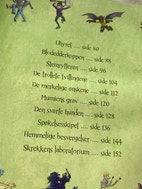 Uhyret .... side 80
Blodedderkoppen .... side 88
Stentyfteren .... side 96
De trollete tvillingene .... side 104
De merkelige ønskene .... side 112
Mumiens grav .... side 120
Den svarte hunden .... side 128
Spøkelsesskipet .... side 136
Hemmelige besvergelser .... side 144
Skrekkens laboratorium .... side 152